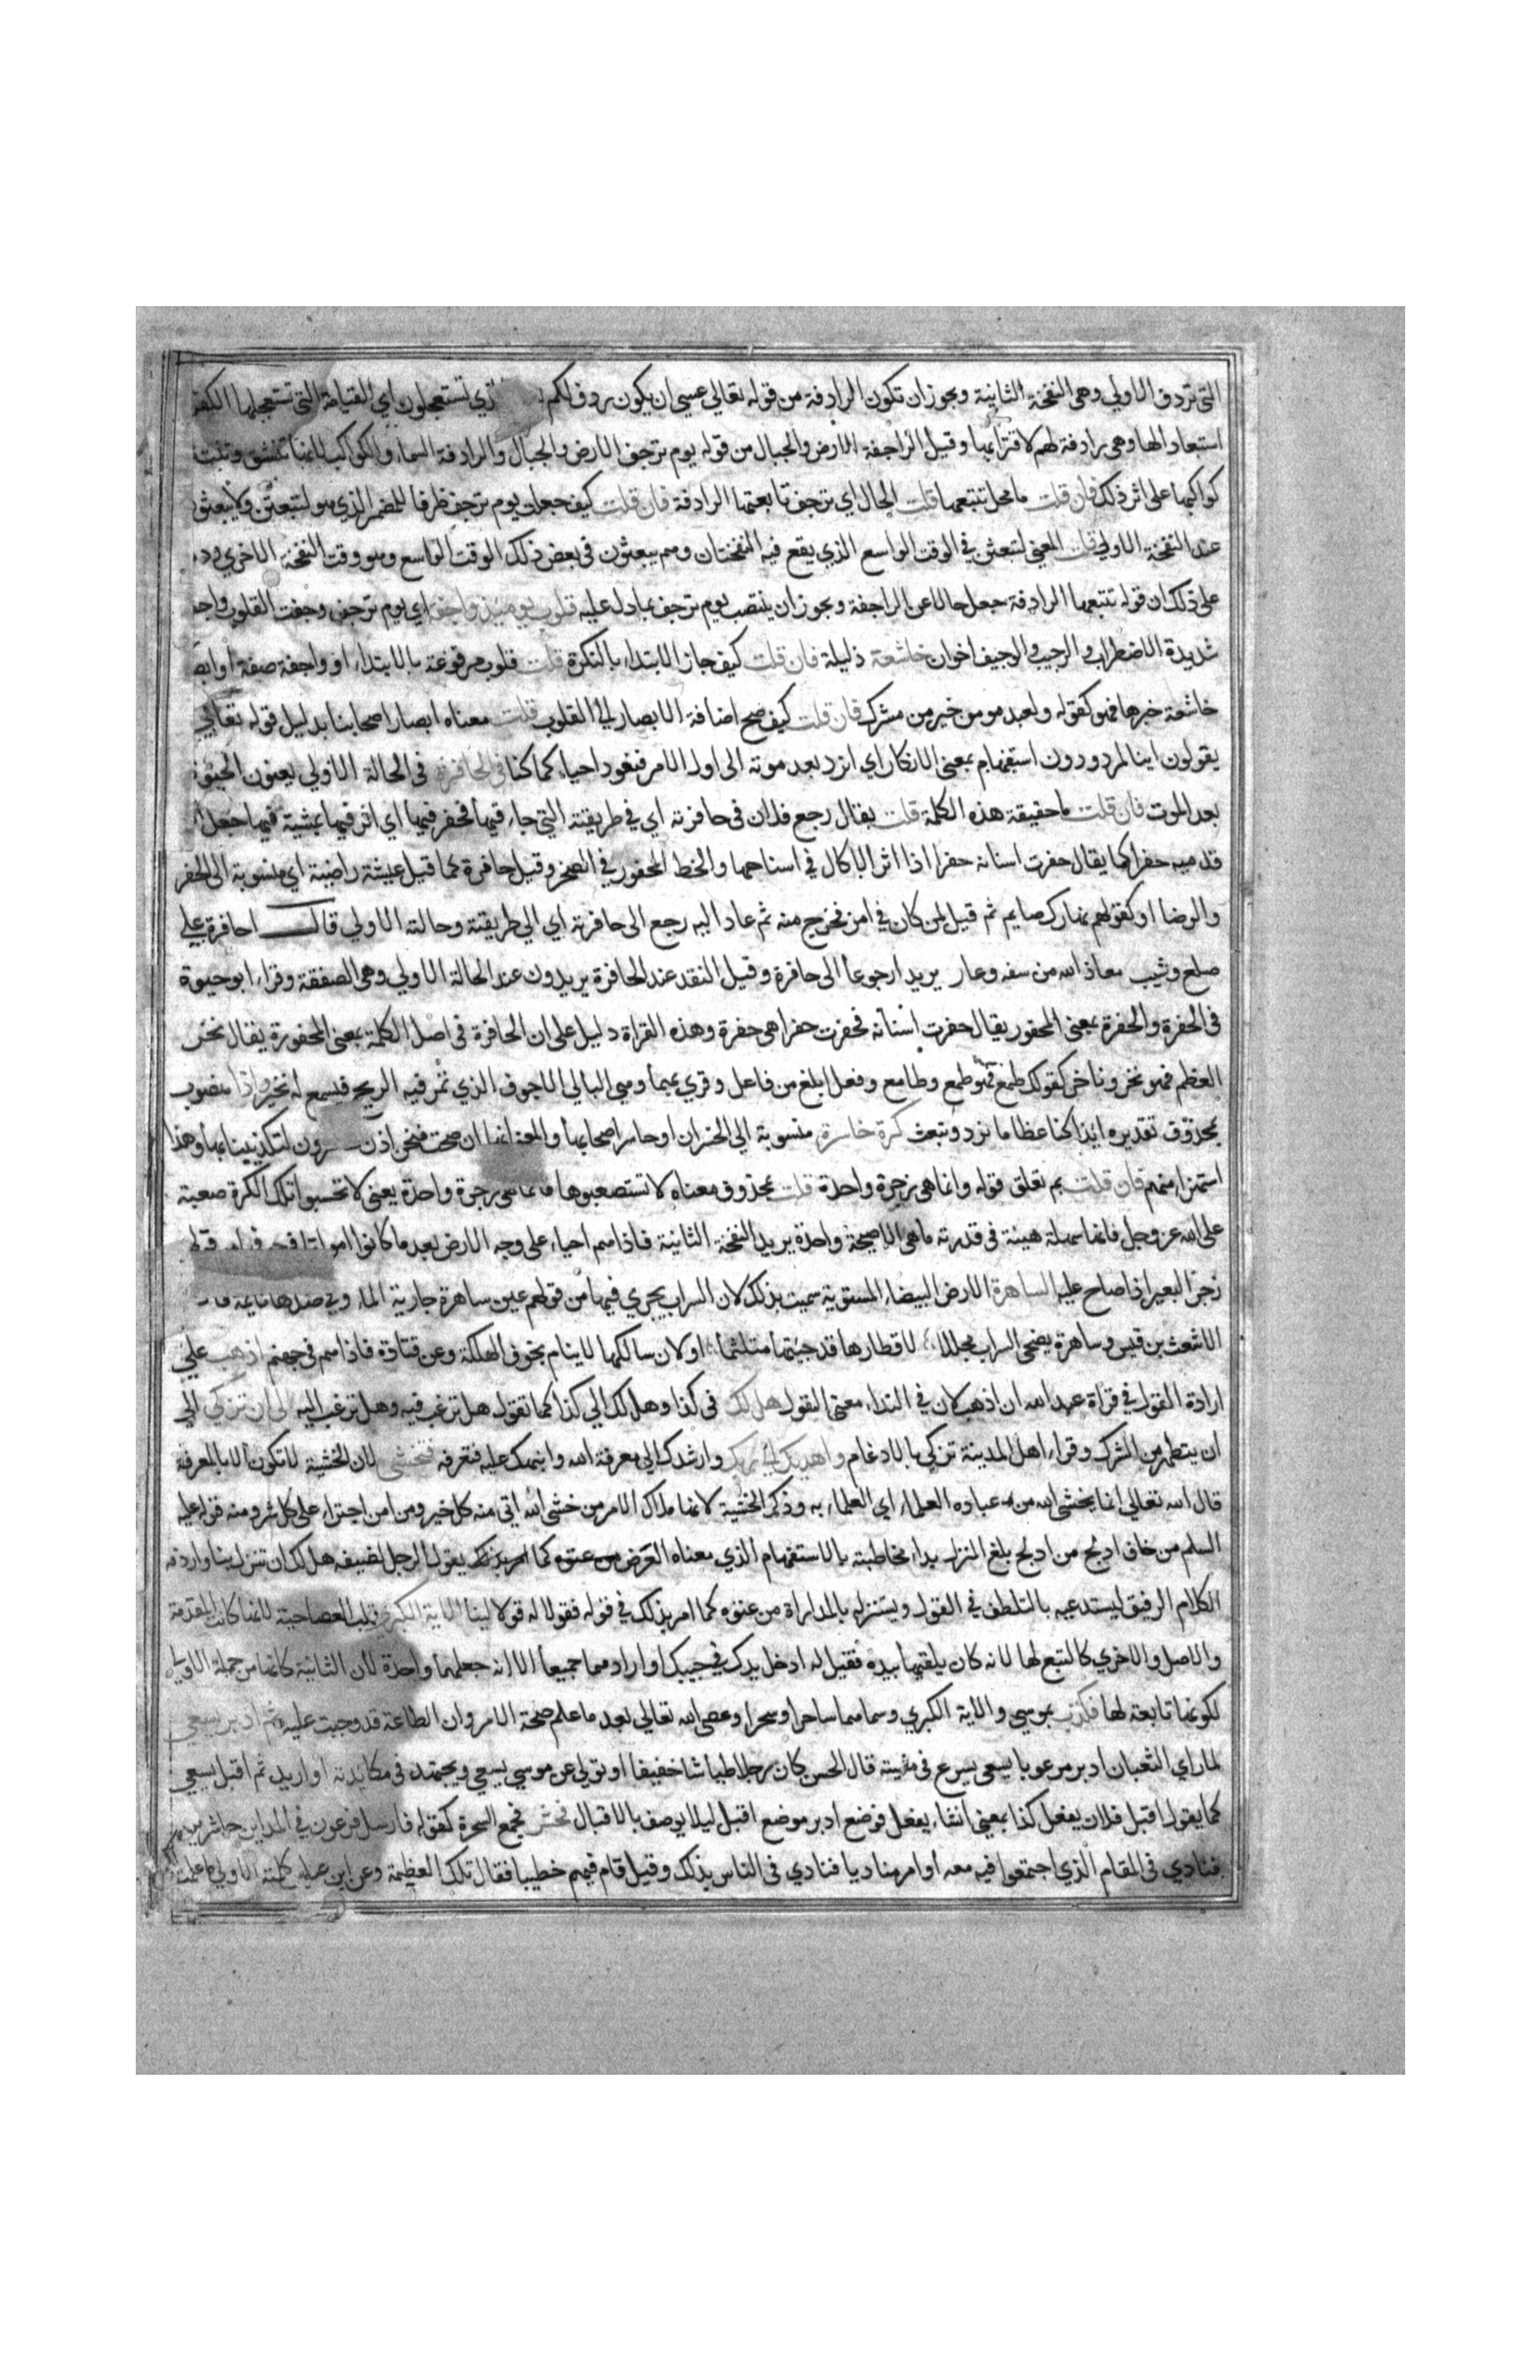 التى تردف الاولي وهى النفخة الثانية ويجوز ان تكون الرادفة من قوله تعالي عسى ان يكون ردف لكم تستعجلون اي القيامة التى تستعجلها الكفر
استبعادا لها وهى رادفة لهم لاقترابها وقيل الراجفة الارض والجبال من قوله يوم ترجف الارض والجبال والرادفة السماء والكواكب لانها تنشق وتنبث
كواكبها على اثر ذلك فان قلت ما محل تتبعها قلت الحال اي ترجف تابعتها الرادفة فان قلت كيف جعلت يوم ترجف ظرفا للمضمر الذي هو لتبعثن ولا يبعثون
عند النفخة الاولي قلت المعنى لتبعثن في الوقت الواسع الذي يقع فيه النفختان وهم يبعثون فى بعض ذلك الوقت الواسع وهو وقت النفخة الاخري ود
على ذلك ان قوله تتبعها الرادفة جعل حالا عن الراجفة ويجوز ان ينتصب يوم ترجف بما دل عليه قلوب يومئذ واجفة اي يوم ترجف وجفت القلوب واجفة
شديدة الاضطراب والوجيب والوجيف اخوان خاشعة ذليلة فان قلت كيف جاز الابتداء بالنكرة قلت قلوب مرفوعة بالابتداء وواجفة صفة ابص
خاشعة خبرها فهو كقوله ولعبد مومن خير من مشرك فان قلت كيف صح اضافة الابصار الي القلوب قلت معناه ابصار اصحابنا بدليل قوله تعالي
يقولون اينا لمردودون استفهام بمعنى الانكار اي انرد بعد موته الى اول الامر فنعود احياء كما كنا فى الحافرة فى الحالة الاولي يعنون الحيوة
بعد الموت فان قلت ما حقيقة هذه الكلمة قلت يقال رجع فلان فى حافرته اي في طريقته التي جاء فيها فحفر فيها اي اثر فيها بمشيه فيها جعل
قدميه حفرا كما يقال حفرت اسنانه حفرا اذا اثر الاكال في اسناخها والخط المحفور في الصخر وقيل حافرة كما قيل عيشة راضية اي منسوبة الى الحفر
والرضا او كقولهم نهارك صايم ثم قيل لمن كان في امر فخرج منه ثم عاد اليه رجع الى حافرته اي الي طريقته وحالته الاولي قال احافرة على
صلع وشيب معاذ الله من سفه وعار يريد ارجوعا الى حافرة وقيل النقد عند الحافرة يريدون عند الحالة الاولي وهى الصفقة وقراء ابو حيوة
فى الحفرة والحفرة بمعنى المحفور يقال حفرت اسنانه فحفرت حفرا هى حفرة وهذه القراة دليل على ان الحافرة فى اصل الكلمة بمعنى المحفورة يقال نخر
العظم فهو نخر وناخر كقولك طمع فهو طمع وطامع وفعل ابلغ من فاعل وقري بهما وهى البالي الاجوف الذي تمر فيه الريح فتسمع له نخير واذا منصوب
بمحذوف تقديره ايذا كنا عظاما نرد ونبعث كرة خاسرة منسوبة الى الخسران او خاسر اصحابها والمعنى انها ان صحت فنحن اذن لتكذيبنا بها وهذا
استهزاء منهم فان قلت بم تعلق قوله وانما هى زجرة واحدة قلت بمحذوف معناه لا تستصعبوها فانما هى زجرة واحدة يعنى لا تحسبوا تلك الكرة صعبة
على الله عز وجل فانها سهلة هينة فى قدرته ما هى الا صيحة واحدة يريد النفخة الثانية فاذا هم احياء على وجه الارض بعد ما كانوا امواتا
زجر البعير اذا صاح عليه الساهرة الارض البيضاء المستوية سميت بذلك لان السراب يجري فيها من قولهم عين ساهرة جارية الماء وفى ضدها نايمة
الاشعث بن قيس وساهرة يضحى السراب مجللا لاقطارها قد جيتها متلثما او لان سالكها لا ينام بخوف الهلكة وعن قتادة فاذا هم فى جهنم اذهب على
ارادة القول في قراة عبد الله ان اذهب لان في النداء معنى القول هل لك فى كذا وهل لك الي كذا كما تقول هل ترغب فيه وهل ترغب اليه الى ان تزكي الى
ان يتطهر من الشرك وقراء اهل المدينة تزكي بالادغام واهديك الي ربك وارشدك الي معرفة الله وانبهك عليه فتعرفه فتخشى لان الخشية لا تكون الا بالمعرفة
قال الله تعالي انما يخشى الله من عباده العلماء اي العلماء به وذكر الخشية لانها ملاك الامر من خشى الله اتي منه كل خير ومن امن اجتراء على كل شر ومنه قوله عليه
السلم من خاف ادلج من ادلج بلغ المنزل بداء مخاطبته بالاستفهام الذي معناه العرض من عتوه كما امر بذلك يقول الرجل لضيفه هل لك ان تنزل بنا واردفه
الكلام الرفيق ليستدعيه بالتلطف في القول ويستنزله بالمداراة من عتوه كما امر بذلك في قوله فقولا له قولا لينا الاية الكبرى قلب العصا حية لانها كانت المقدمة
والاصل والاخري كالتبع لها لانه كان يلقيها بيده فقيل له ادخل يدك في جيبك او اراد هما جميعا الا انه جعلهما واحدة لان الثانية كانها من جملة الاولي
لكونها تابعة لها فكذب بموسى والاية الكبري وسماهما ساحرا وسحرا وعصى الله تعالي بعد ما علم صحة الامر وان الطاعة قد وجبت عليه ثم ادبر يسعى
لما راي الثعبان ادبر مرعوبا يسعى يسرع فى مشيته قال الحسن كان رجلا طياشا خفيفا او تولي عن موسى يسعى ويجتهد فى مكايدته او اريد ثم اقبل يسعى
كما يقول اقبل فلان يفعل كذا بمعنى انشاء يفعل فوضع ادبر موضع اقبل ليلا يوصف بالاقبال فحشر فجمع السحرة كقوله فارسل فرعون في المداين حاشرين
فنادي فى المقام الذي اجتمعوا فيه معه او امر مناديا فنادي فى الناس بذلك وقيل قام فيهم خطيبا فقال تلك العظيمة وعن ابن عباس كلمته الاولي ما علمت